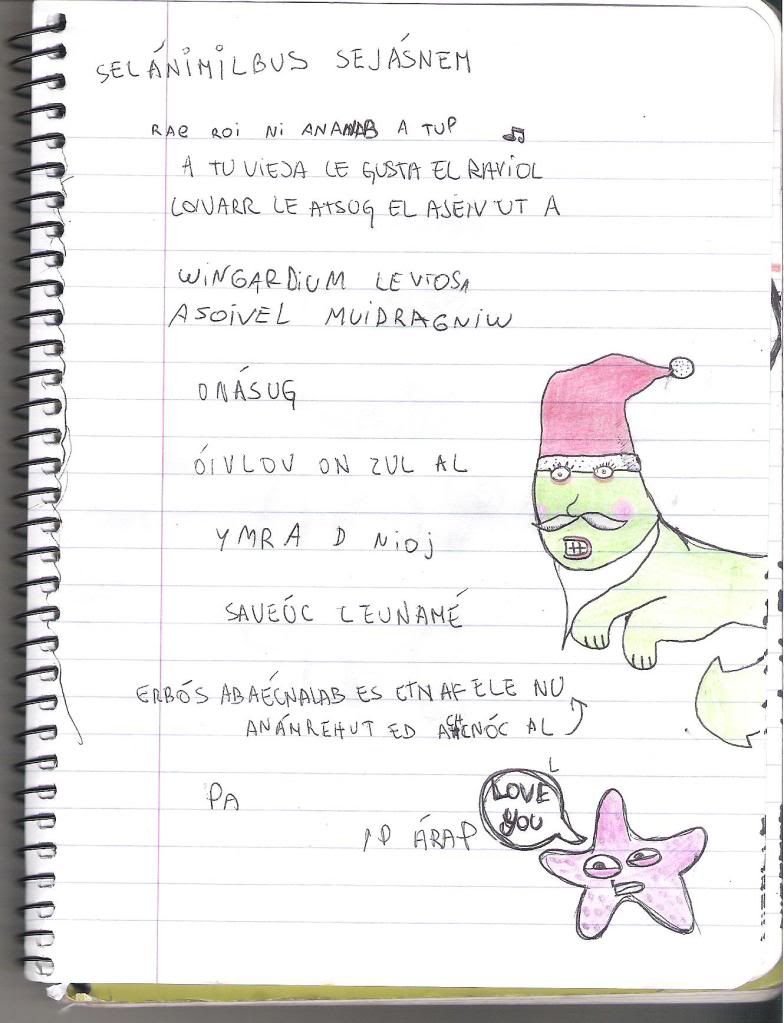 SELÁNIMILBUS SEJÁSNEM
RAE ROI NI ANANAB A TUP
A TU VIEJA LE GUSTA EL RAVIOL
LOIVARR LE ATSUG EL AJEIV UT A
WINGARDIUM LEVIOSA
ASOIVEL MUIDRAGNIW
ONÁSUG
ÓIVLOV ON ZUL AL
YMRA D NIOJ
SAVEÓC LEUNAMÉ
ERBÓS ABAÉCNALAB ES ETNAFELE NU
ANÁMREHUT ED AHCNÓC AL
PA
L
LOVE
YOU
IP ÁRAP